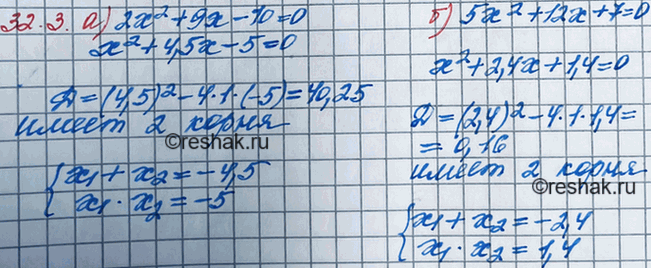 32.3. а) 2x² + 9x - 10 = 0
x² + 4,5x - 5 = 0
Д = (4,5)² - 4·1·(-5) = 40,25
имеет 2 корня
©reshak.ru
{ x₁ + x₂ = -4,5
x₁ · x₂ = -5
б) 5x² + 12x + 7 = 0
x² + 2,4x + 1,4 = 0
Д = (2,4)² - 4·1·1,4 =
= 0,16
имеет 2 корня
©reshak.ru
{ x₁ + x₂ = -2,4
x₁ · x₂ = 1,4